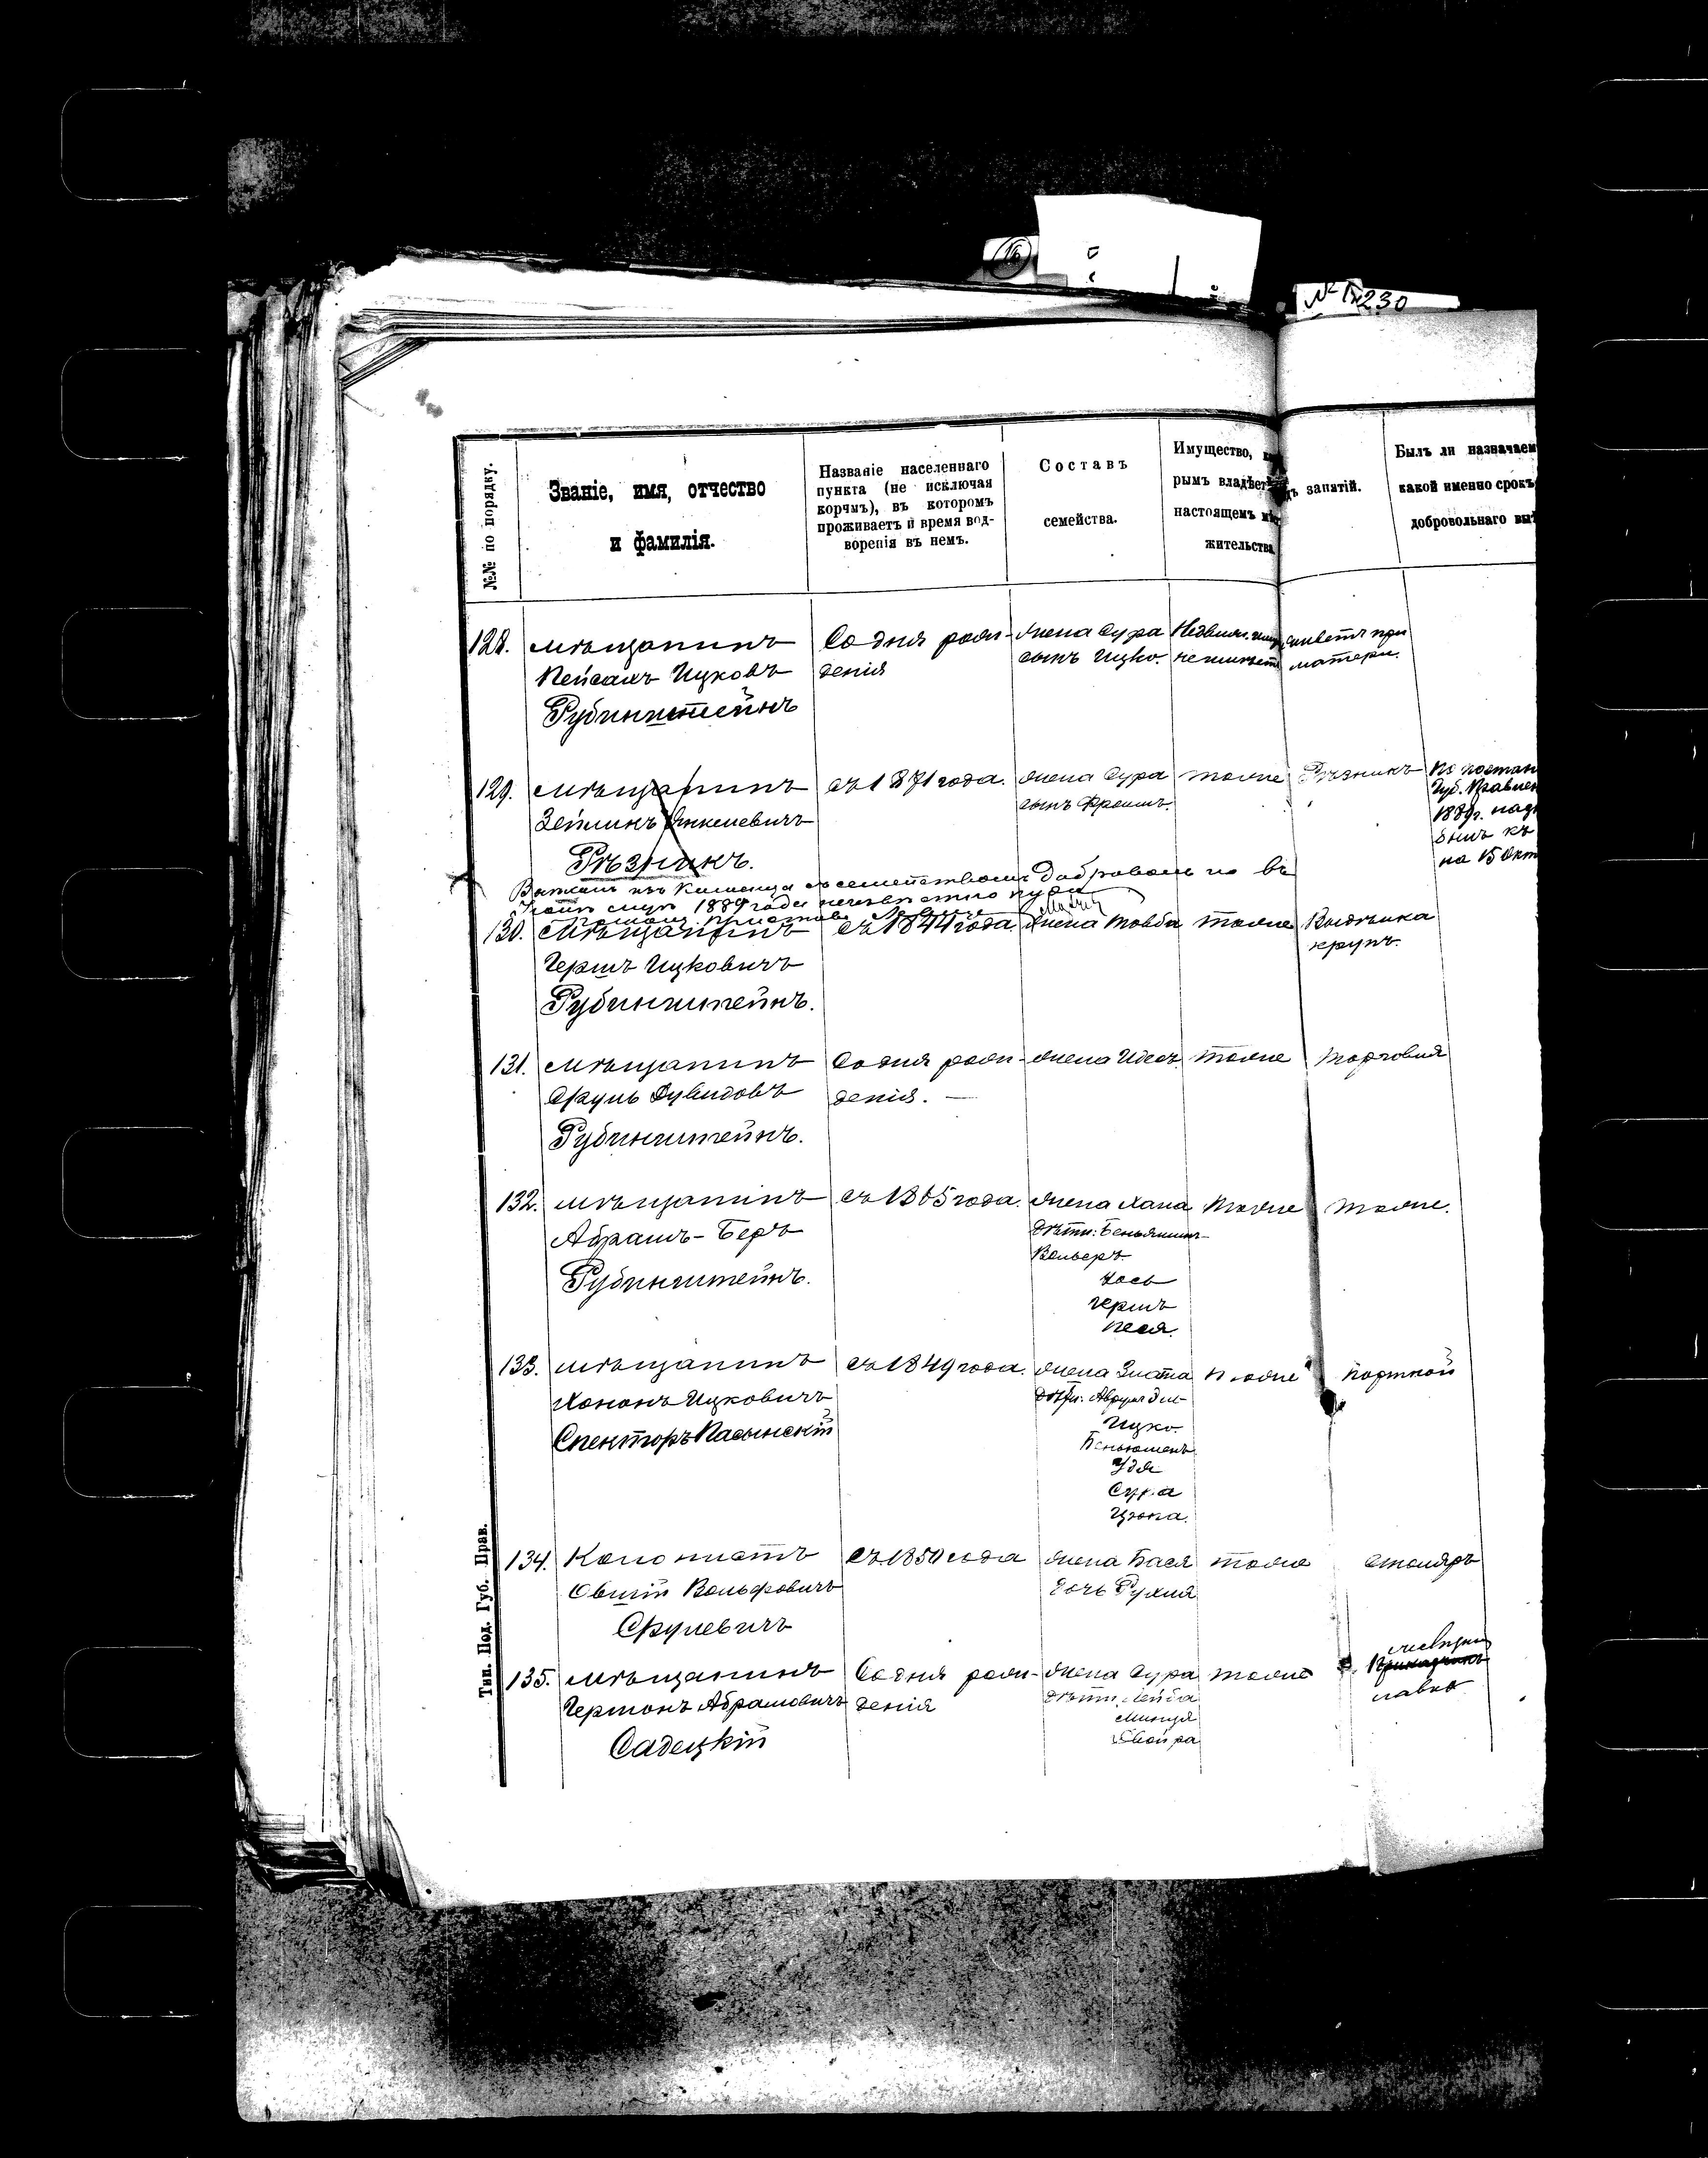 № 230
№№ по порядку.
Званіе, имя, отчество
и фамилія.
Названіе населеннаго
пункта (не исключая
корчмъ), въ которомъ
проживаетъ и время вод-
воренія въ немъ.
Составъ
семейства.
Имущество,
рымъ владѣетъ
настоящемъ
жительства
занятій.
Былъ ли назначаем
какой именно срокъ
добровольнаго
128. мѣщанинъ
Пейсахъ Ицковъ
Рубинштейнъ
Со дня рож-
денія
жена Сура
сынъ Ицко.
Недвиж.
не имѣетъ
живетъ при
матери.
129. мѣщанинъ
Зейлинъ Янкелевичъ
Рѣзникъ.
съ 1871 года.
жена Сура
сынъ Фроимъ.
тоже
Рѣзникъ
По постан
Губ. Правлен
1889г.
къ
на 15 Окт
съ семействомъ добровольно въ
1889 года
130. мѣщанинъ
Гершъ Ицковичъ
Рубинштейнъ.
съ 1844 года.
жена Товба
тоже
крупъ.
131. мѣщанинъ
Сруль Дувидовъ
Рубинштейнъ.
Со дня рож-
денія. —
жена Идесъ
тоже
торговля
132. мѣщанинъ
Абрамъ-Беръ
Рубинштейнъ.
съ 1865 года.
жена Хана
дѣти: Беньяминъ-
Вольберъ
Гершъ
Песя.
тоже
тоже.
133. мѣщанинъ
Хононъ Ицковичъ
Спекторъ Пасынскій
съ 1849 года.
жена Злата
дѣти:
Ицко
Сура
тоже
портной
134. Колонистъ
Овшій Вольфовичъ
Срулевичъ
съ 1850 года
жена Бася
дочь Рухля
тоже
столяръ
135. мѣщанинъ
Гершонъ Абрамовичъ
Садецкій
Со дня рож-
денія
жена Сура
дѣти: Лейба
тоже
Приказчикъ
лавка
Тип. Под. Губ. Прав.